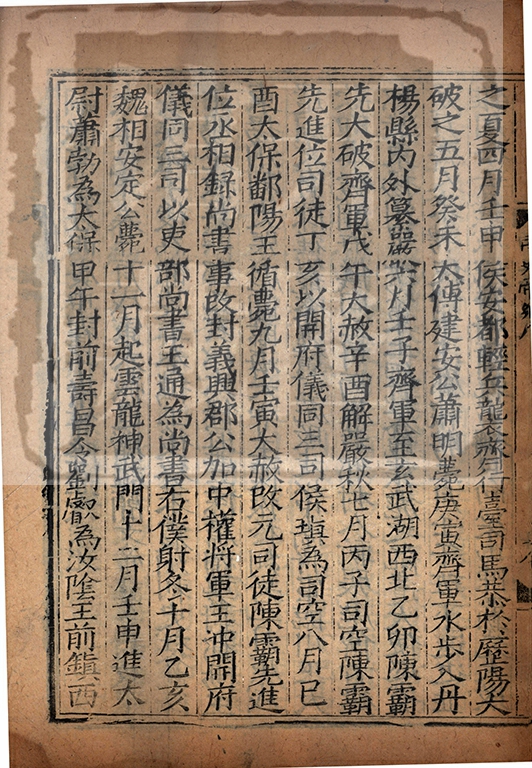 之夏四月壬申侯安都輕兵襲齊行臺司馬恭於歷陽大
破之五月癸未太傅建安公蕭明薨庚寅齊軍水步入丹
楊縣內外纂嚴六月壬子齊軍至玄武湖西北乙卯陳霸
先大破齊軍戊午大赦辛酉解嚴秋七月丙子司空陳霸
先進位司徒丁亥以開府儀同三司侯瑱為司空八月己
酉太保鄱陽王循薨九月壬寅大赦改元司徒陳霸先進
位丞相錄尚書事改封義興郡公加中權將軍王冲開府
儀同三司以吏部尚書王通為尚書右僕射冬十月乙亥
魏相安定公薨十一月起雲龍神武門十二月壬申進太
尉蕭勃為太保甲午封前壽昌令劉叡為汝陰王前鎮西